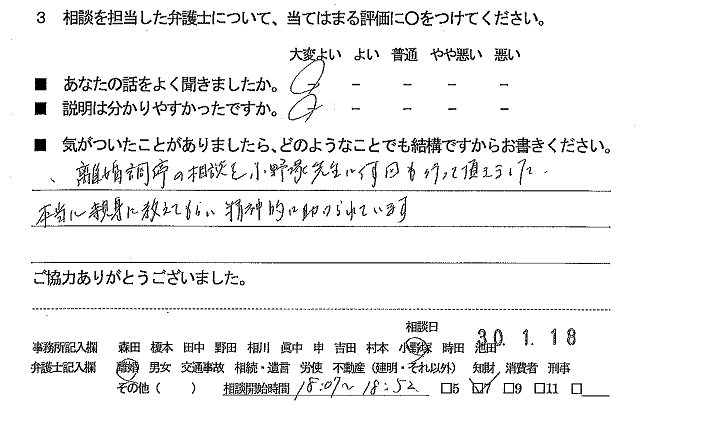 3 相談を担当した弁護士について、当てはまる評価に〇をつけてください。
大変よい よい 普通 やや悪い 悪い
■ あなたの話をよく聞きましたか。 － － － － －
■ 説明は分かりやすかったですか。 － － － － －
■ 気がついたことがありましたら、どのようなことでも結構ですからお書きください。
、離婚調停の相談を小野塚先生に何回も行って頂きました.
本当に親身に教えてもらい精神的に助けられています
ご協力ありがとうございました。
相談日 30.1.18
事務所記入欄 森田 榎本 田中 野田 相川 眞中 申 吉田 村本 小野塚 時田 池田
弁護士記入欄 離婚 男女 交通事故 相続・遺言 労使 不動産（建明・それ以外） 知財 消費者 刑事
その他（ ） 相談開始時間 18:07～18:52 □5 ☑7 □9 □11 □